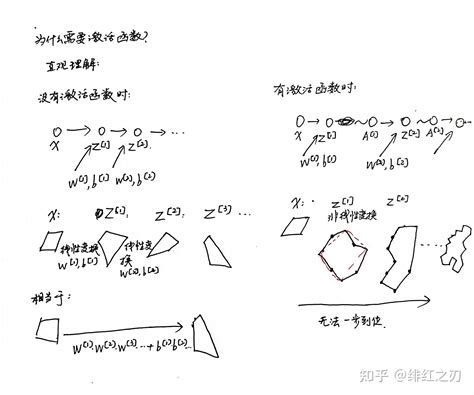 为什么需要激活函数?
直观理解:
没有激活函数时:
X Z[1] Z[2]
W[1],b[1] W[2],b[2]
X: Z[1], Z[2], Z[3]...
线性变换 W[1],b[1]
线性变换 W[2],b[2]
相当于:
W[1]·W[2]·W[3]...+b[1]b[2]...
有激活函数时:
X Z[1] A[1] Z[2] A[2]
W[1],b[1] W[2],b[2]
X: Z[1] Z[2]
非线性变换
无法一步到位.
知乎 @绯红之刃